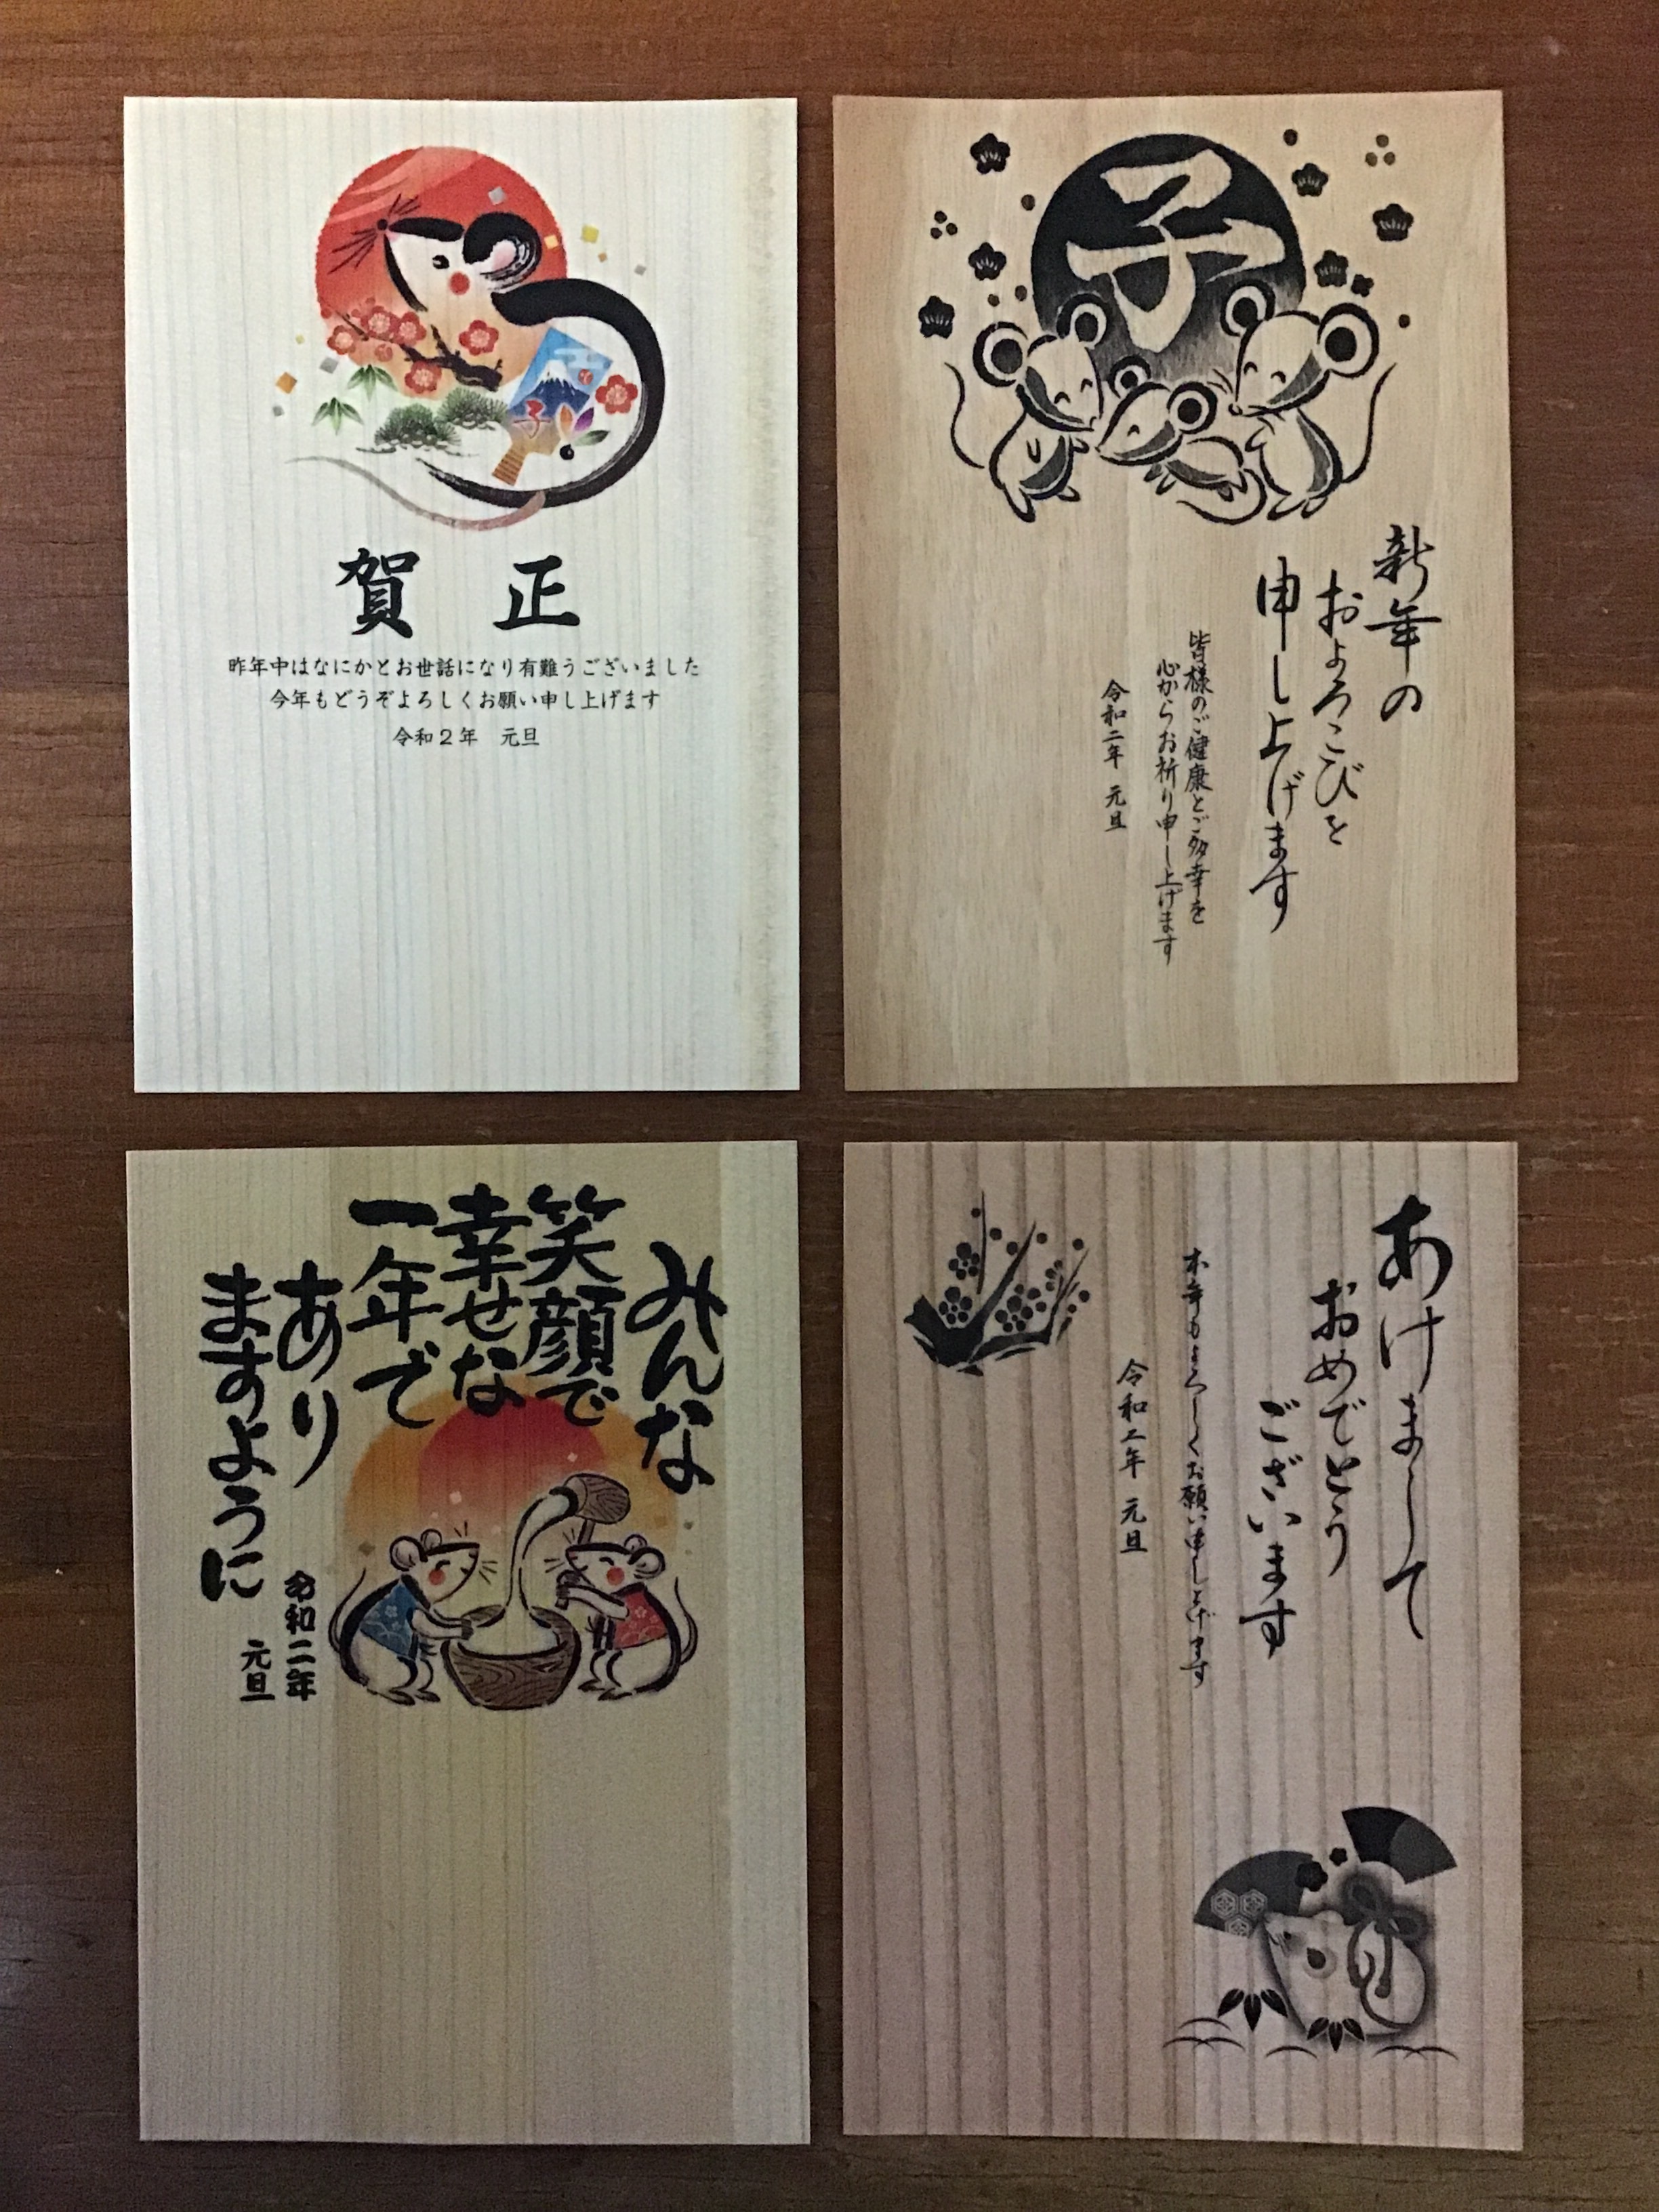 子
賀 正
昨年中はなにかとお世話になり有難うございました
今年もどうぞよろしくお願い申し上げます
令和2年 元旦
子
新年の
およろこびを
申し上げます
皆様のご健康とご多幸を
心からお祈り申し上げます
令和二年 元旦
みんな
笑顔で
幸せな
一年で
あり
ますように
令和二年
元旦
あけまして
おめでとう
ございます
本年もよろしくお願い申し上げます
令和二年 元旦